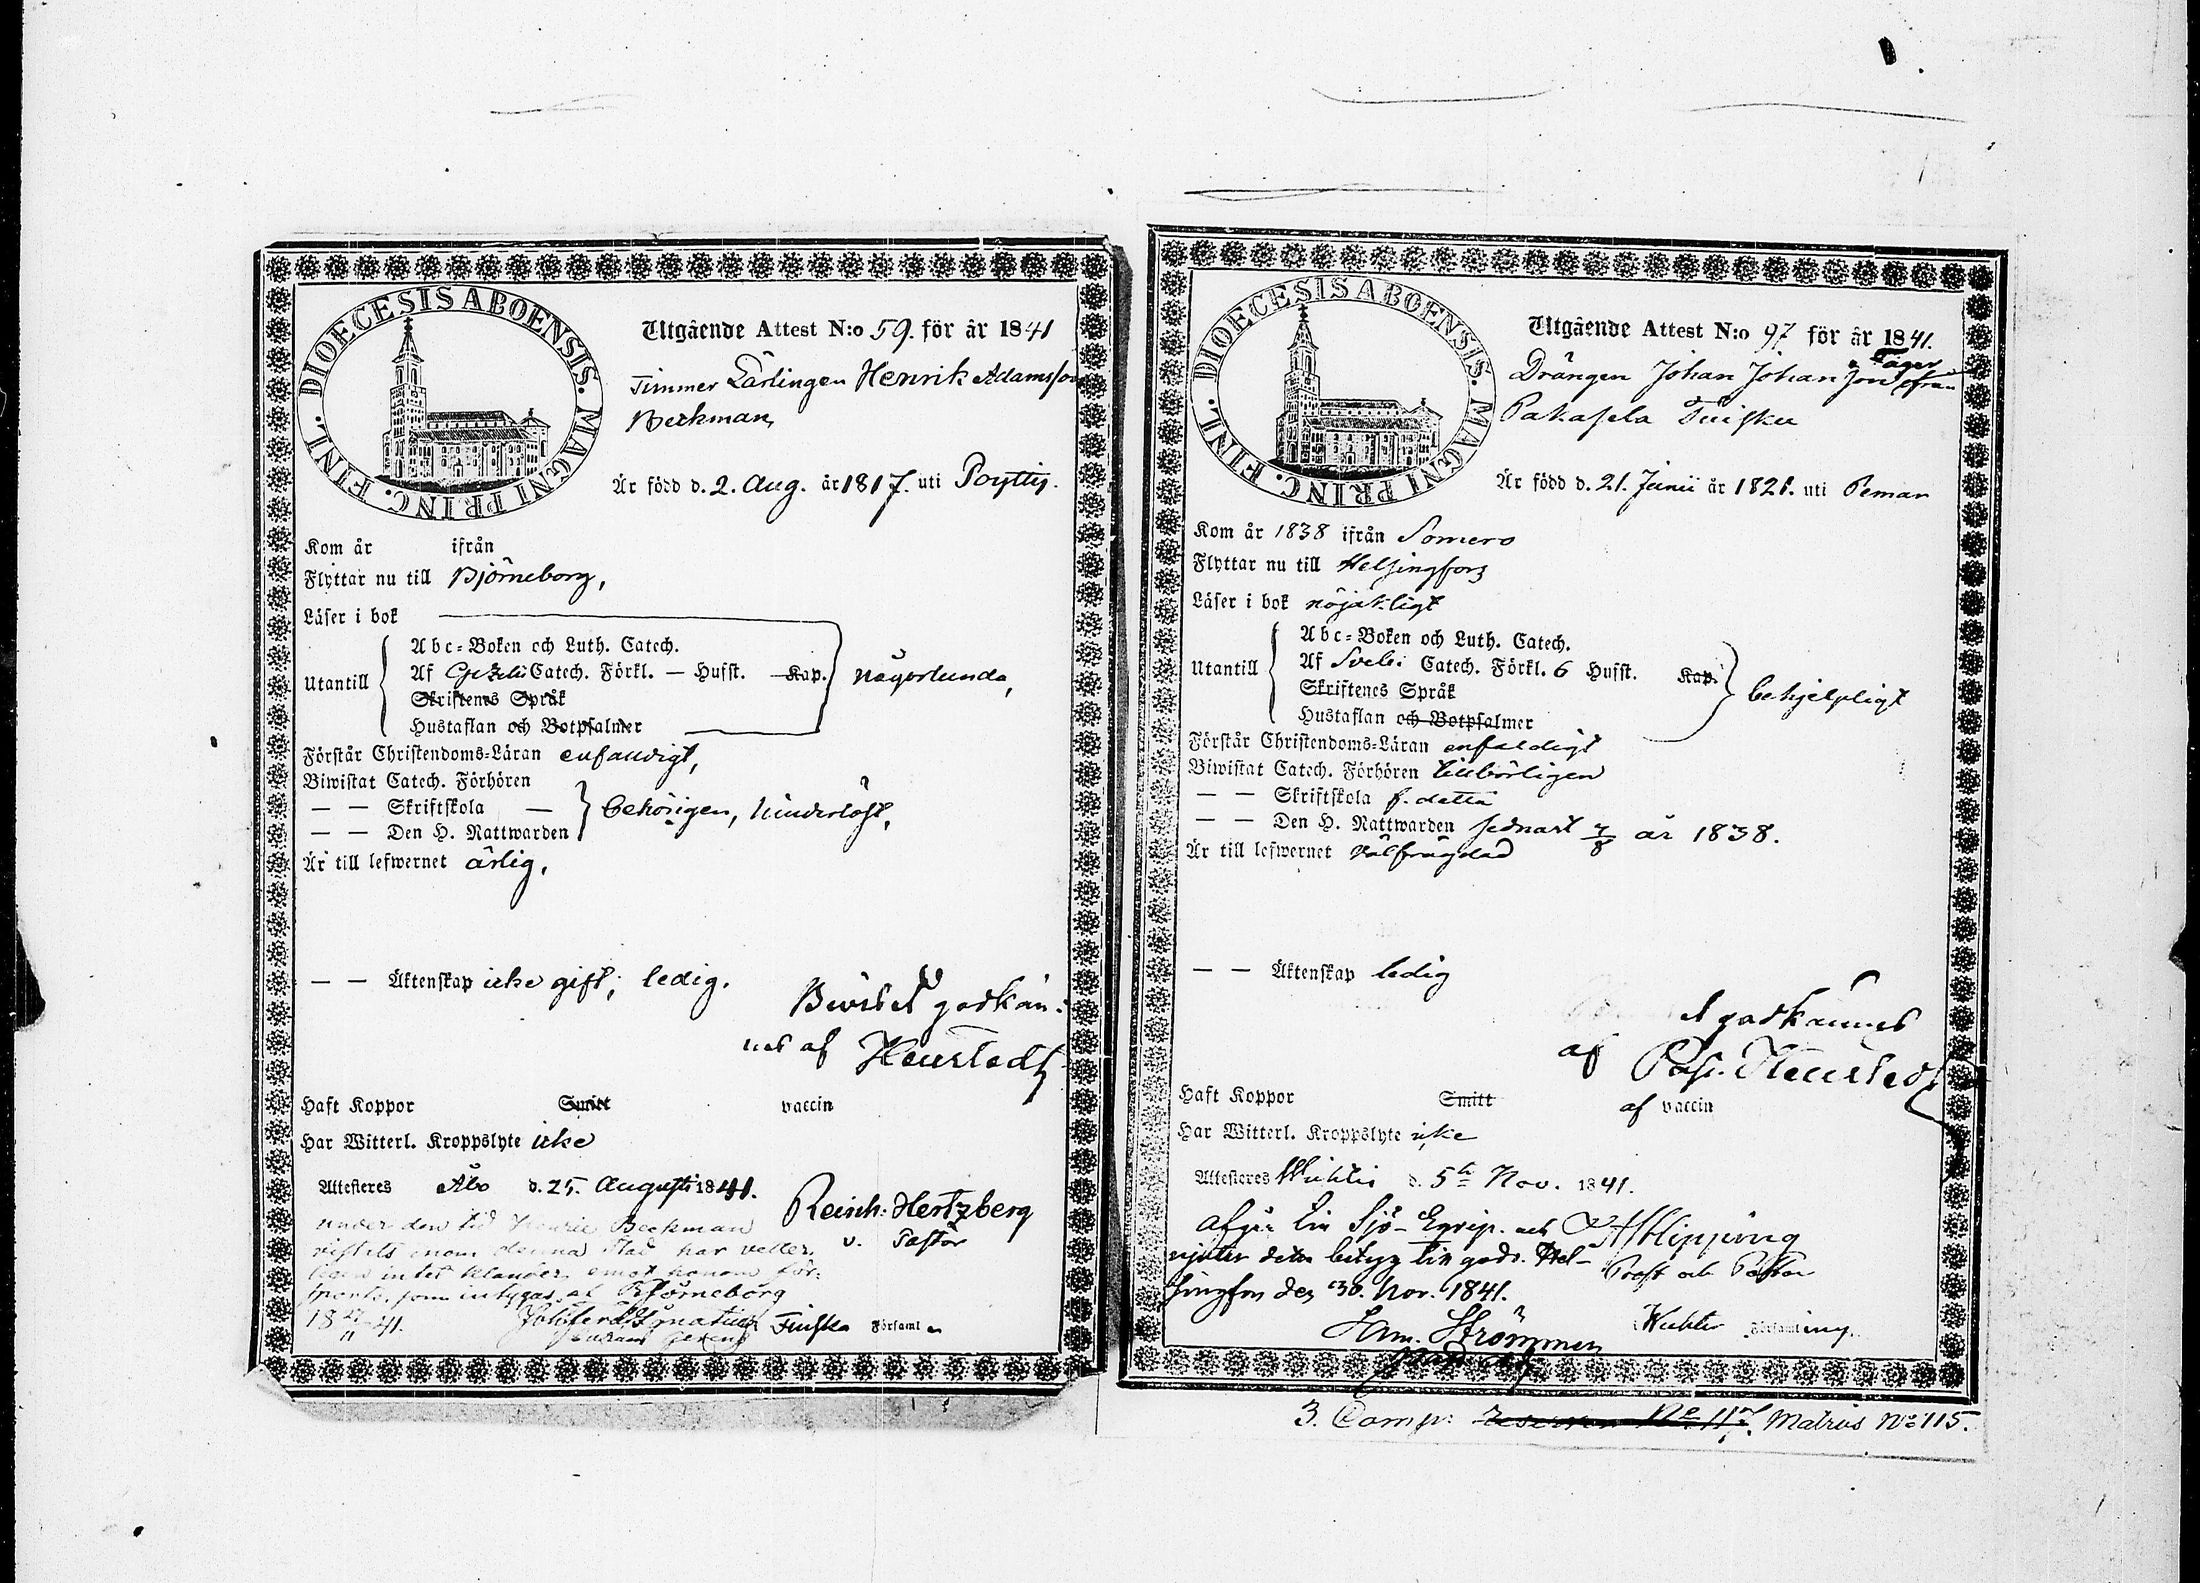 DIOECESIS ABOENSIS. MAGNI PRINC. FINL.
Utgående Attest N:o 59. för år 1841
Timmer Lärlingen Henrik Adamsson
Beckman,
Är född d. 2. Aug. år 1817. uti Poyttis.
Kom år ifrån
Flyttar nu till Björneborg,
Läser i bok
Utantill
Abc-Boken och Luth. Catech.
Af Gezelii Catech. Förkl. — Hufst. — Kap.
Skriftenes Språk
Hustaflan och Botpsalmer
någorlunda,
Förstår Christendoms-Läran enfaldigt,
Biwistat Catech. Förhören
— — Skriftskola —
— — Den H. Nattwarden
behörigen, hinderlöst,
Är till lefwernet ärlig,
— — Äktenskap icke gift; ledig.
Beviset godkän-
nes af
Haft Koppor Smitt vaccin
Har Witterl. Kroppslyte icke
Attesteres Åbo d. 25. Augusti 1841.
Reinh: Hertzberg
v. Pastor
under den tid Henric Beckman
vistats inom denna Stad har veller-
ligen intet klander emot honom för-
sports, som intygas af Björneborg
18 27/11 41.
Finska Församl n
DIOECESIS ABOENSIS. MAGNI PRINC. FINL.
Utgående Attest N:o 97 för år 1841.
Drängen Johan Johansson Tager från
Pakasela
Är född d. 21. Junii år 1821. uti Pemar
Kom år 1838 ifrån Somero
Flyttar nu till Helsingfors
Läser i bok nöjaktligt
Utantill
Abc-Boken och Luth. Catech.
Af Svebi Catech. Förkl. 6 Hufst. Kap.
Skriftenes Språk
Hustaflan och Botpsalmer
behjelpligt
Förstår Christendoms-Läran enfaldigt
Biwistat Catech. Förhören tillbörligen
— — Skriftskola f. detta
— — Den H. Nattwarden sednast 7/8 år 1838.
Är till lefwernet välfrägdad
— — Äktenskap ledig
t godkännes
af Past.
Haft Koppor Smitt af vaccin
Har Witterl. Kroppslyte icke
Attesteres Wichtis d. 5te Nov. 1841.
Afgår till Sjö-Equip. och
njuter detta betyg till godo. Hel-
singfors den 30. Nov. 1841.
Hipping
Prost och Pastor
Wichtis Församling.
Strömmer
3. Comp: Reserven No 117. Matros No 115.